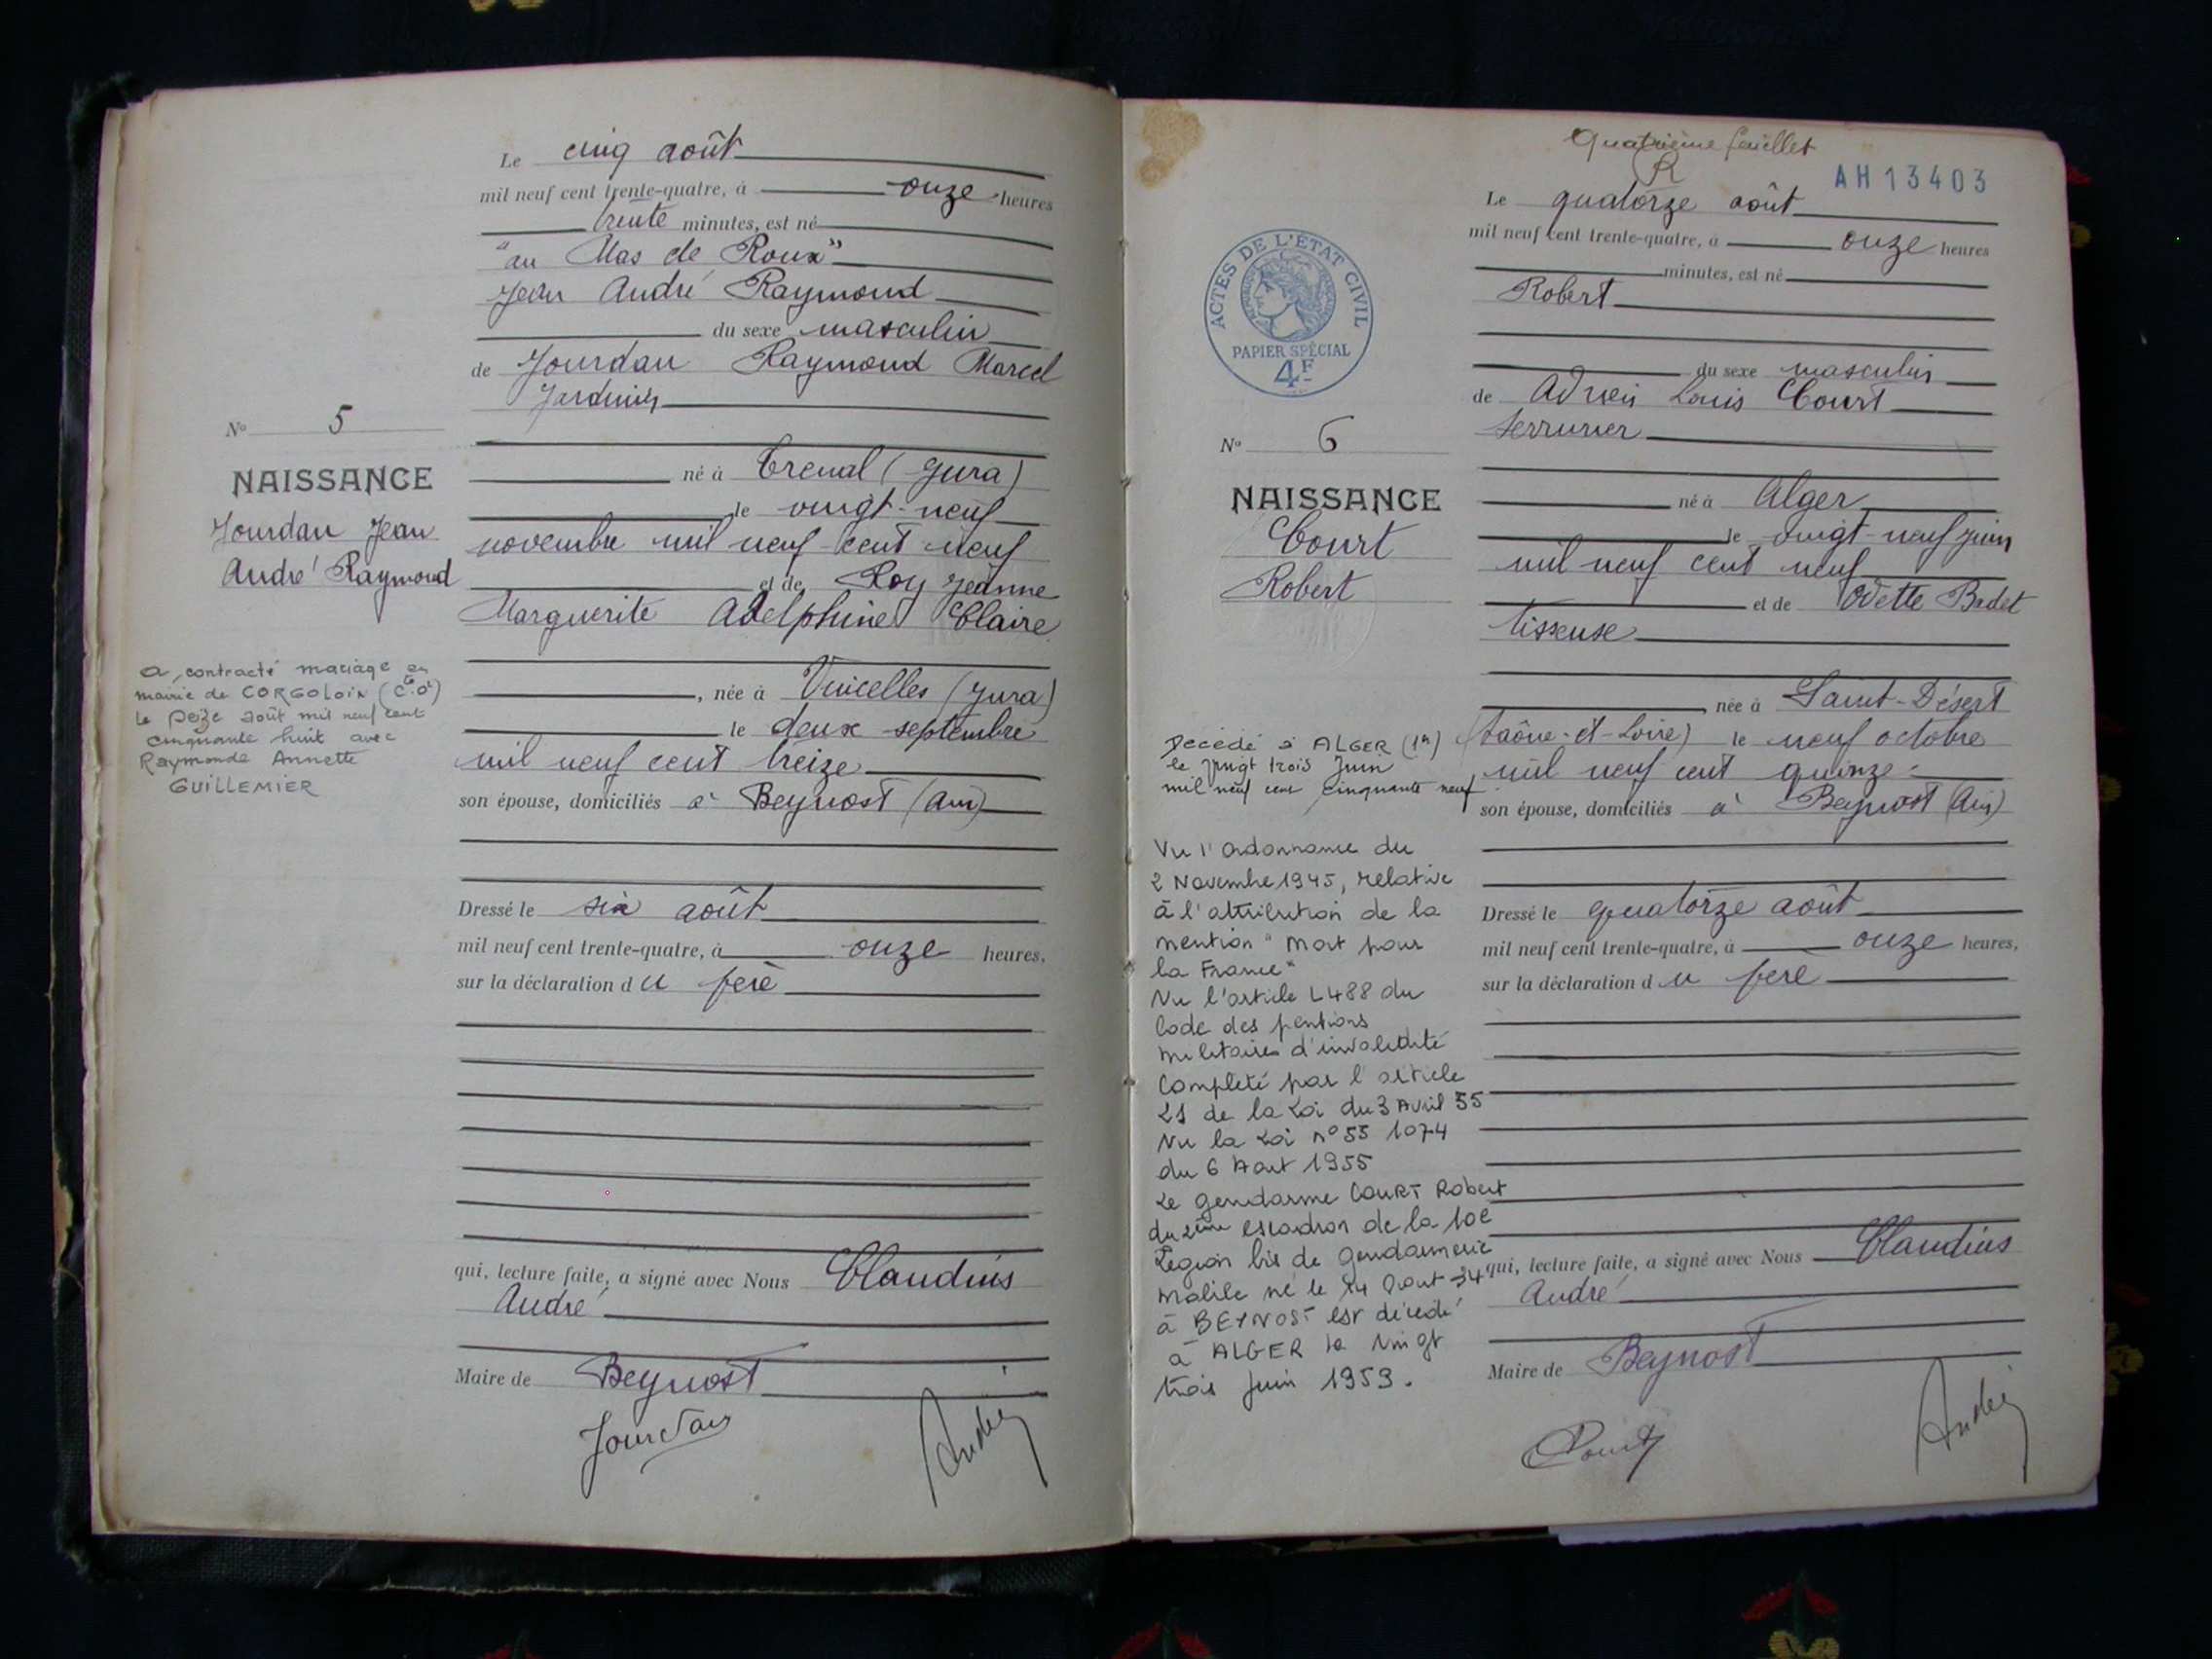 Le cinq août
mil neuf cent trente-quatre, à onze heures
trente minutes, est né
"au Mas de Roux"
Jean André Raymond
du sexe masculin
de Jourdan Raymond Marcel
Jardinier
N° 5
NAISSANCE
Jourdan Jean
André Raymond
né à Trenal (Jura)
le vingt-neuf
novembre mil neuf cent neuf
et de Roy Jeanne
Marguerite Adelphine Claire
a contracté mariage en
mairie de CORGOLOIN (Cte d'Or)
le seize août mil neuf cent
cinquante huit avec
Raymonde Annette
GUILLEMIER
, née à Vincelles (Jura)
le deux septembre
mil neuf cent treize
son épouse, domiciliés à Beynost (Ain)
Dressé le six août
mil neuf cent trente-quatre, à onze heures,
sur la déclaration du père
qui, lecture faite, a signé avec Nous Claudius
André
Maire de Beynost
Jourdan
André
Quatrième feuillet
R
AH13403
Le quatorze août
mil neuf cent trente-quatre, à onze heures
minutes, est né
Robert
ACTES DE L'ÉTAT CIVIL
PAPIER SPÉCIAL
4F
du sexe masculin
de Adrien Louis Court
serrurier
N° 6
NAISSANCE
Court
Robert
né à Alger
le vingt-neuf juin
mil neuf cent neuf
et de Odette Badet
tisseuse
née à Saint-Désert
(Saône-et-Loire) le neuf octobre
mil neuf cent quinze
son épouse, domiciliés à Beynost (Ain)
Décédé à ALGER (1er)
le vingt trois Juin
mil neuf cent cinquante neuf
Vu l'ordonnance du
2 Novembre 1945, relative
à l'attribution de la
mention "Mort pour
la France"
Vu l'article L488 du
Code des pentions
militaires d'invalidité
Completé par l'article
21 de la Loi du 3 Avril 55
Vu la Loi n° 55 1074
du 6 Aout 1955
Le gendarme COURT Robert
du 2ème escadron de la 10e
Légion bis de Gendarmerie
mobile né le 14 Aout 34
à BEYNOST est décédé
à ALGER le vingt
trois Juin 1959.
Dressé le quatorze août
mil neuf cent trente-quatre, à onze heures,
sur la déclaration du père
qui, lecture faite, a signé avec Nous Claudius
André
Maire de Beynost
Court
André